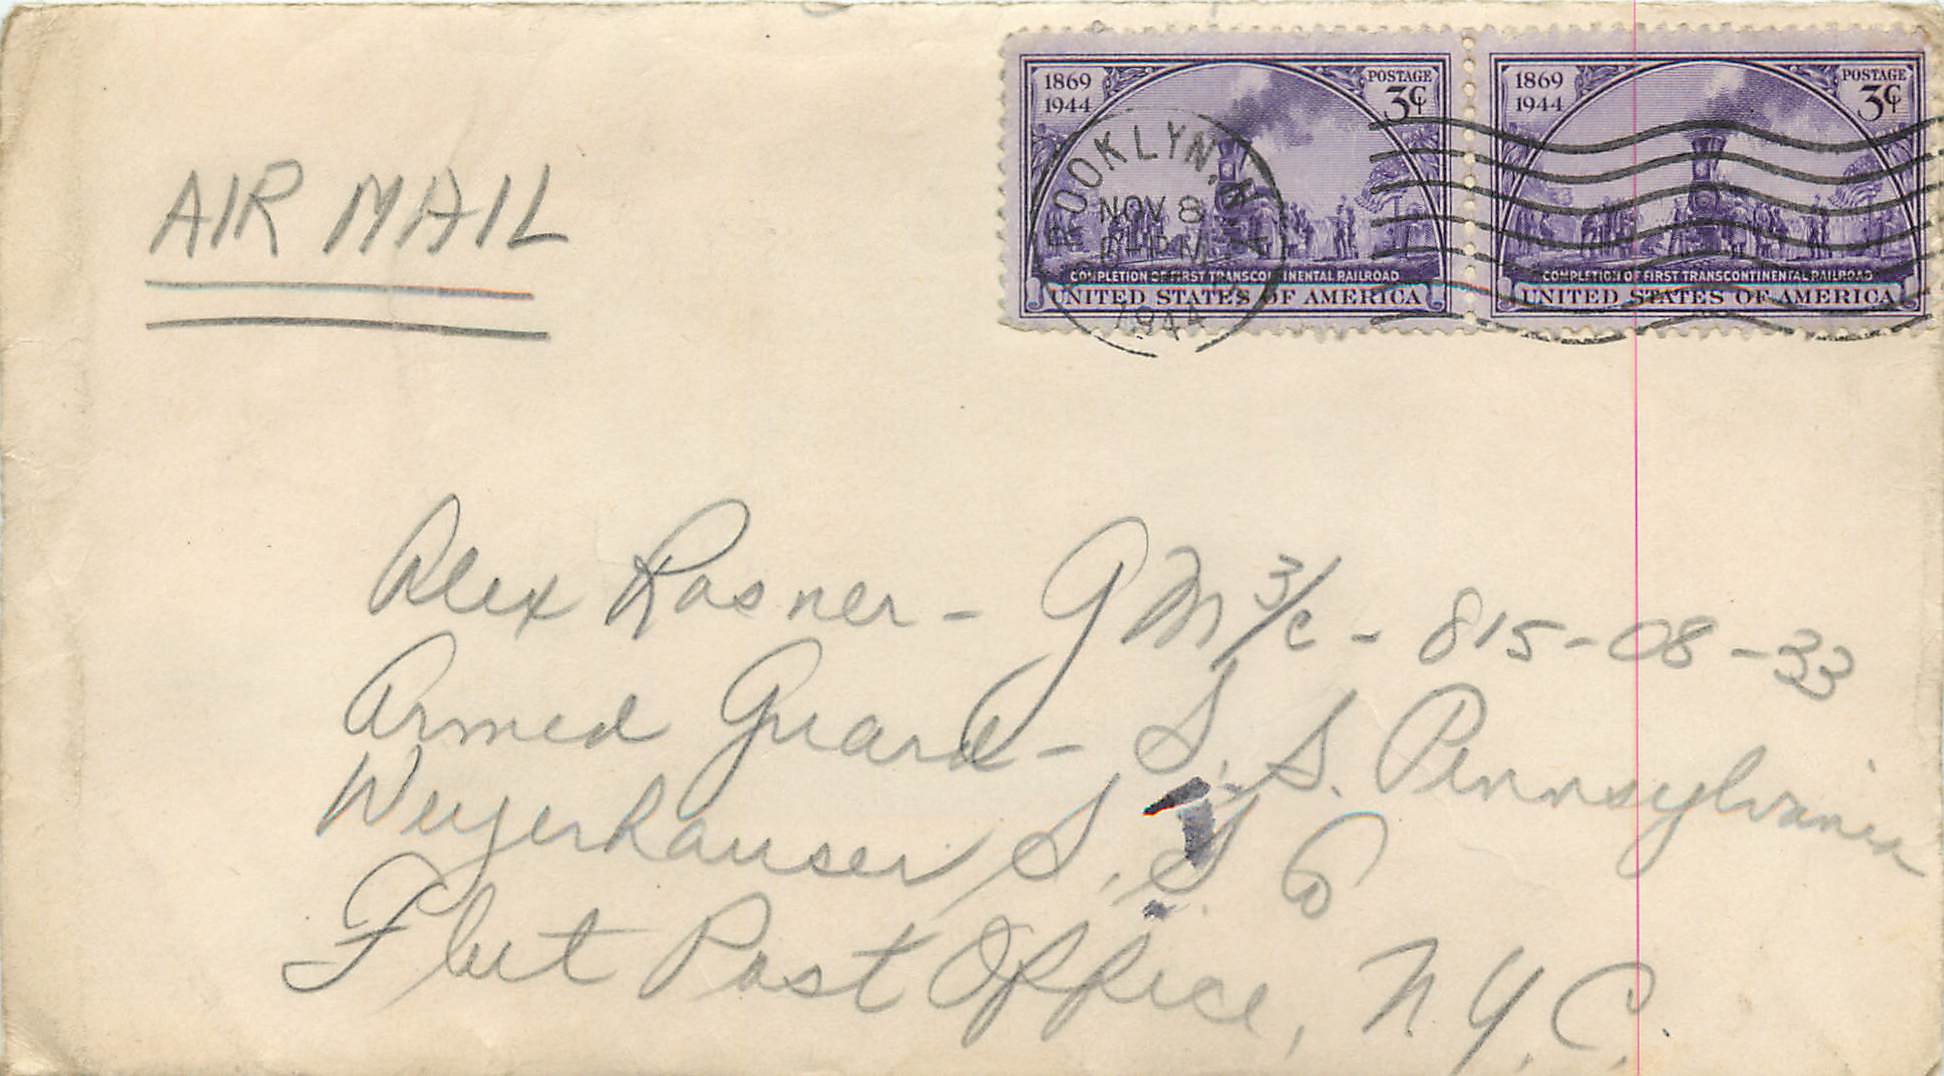 1869 1944 POSTAGE 3¢
COMPLETION OF FIRST TRANSCONTINENTAL RAILROAD
UNITED STATES OF AMERICA
1869 1944 POSTAGE 3¢
COMPLETION OF FIRST TRANSCONTINENTAL RAILROAD
UNITED STATES OF AMERICA
BROOKLYN, N.Y.
NOV 8
PM
1944
AIR MAIL
Alex Rosner - GM 3/c - 815-08-33
Armed Guard - S. S. Pennsylvania
Weyerhauser S. S. Co
Fleet Post Office, N.Y.C.